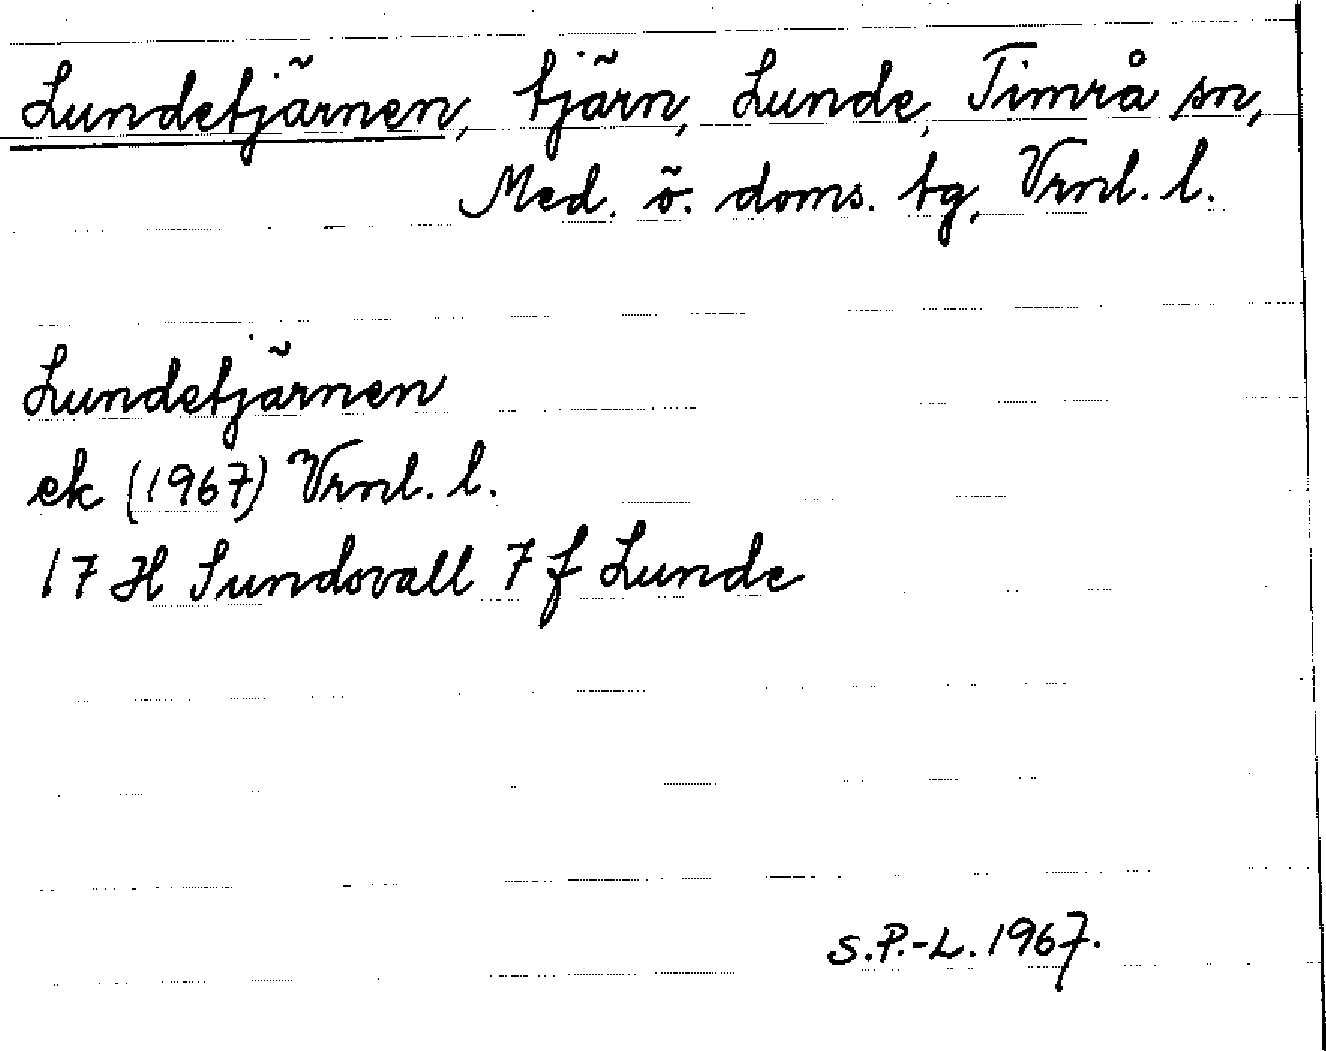 Lundetjärnen, tjärn, Lunde, Timrå sn,
Med. ö. doms. tg, Vrnl. l.
Lundetjärnen
ek (1967) Vrnl. l.
17 H Sundsvall 7 f Lunde
S.P.-L. 1967.